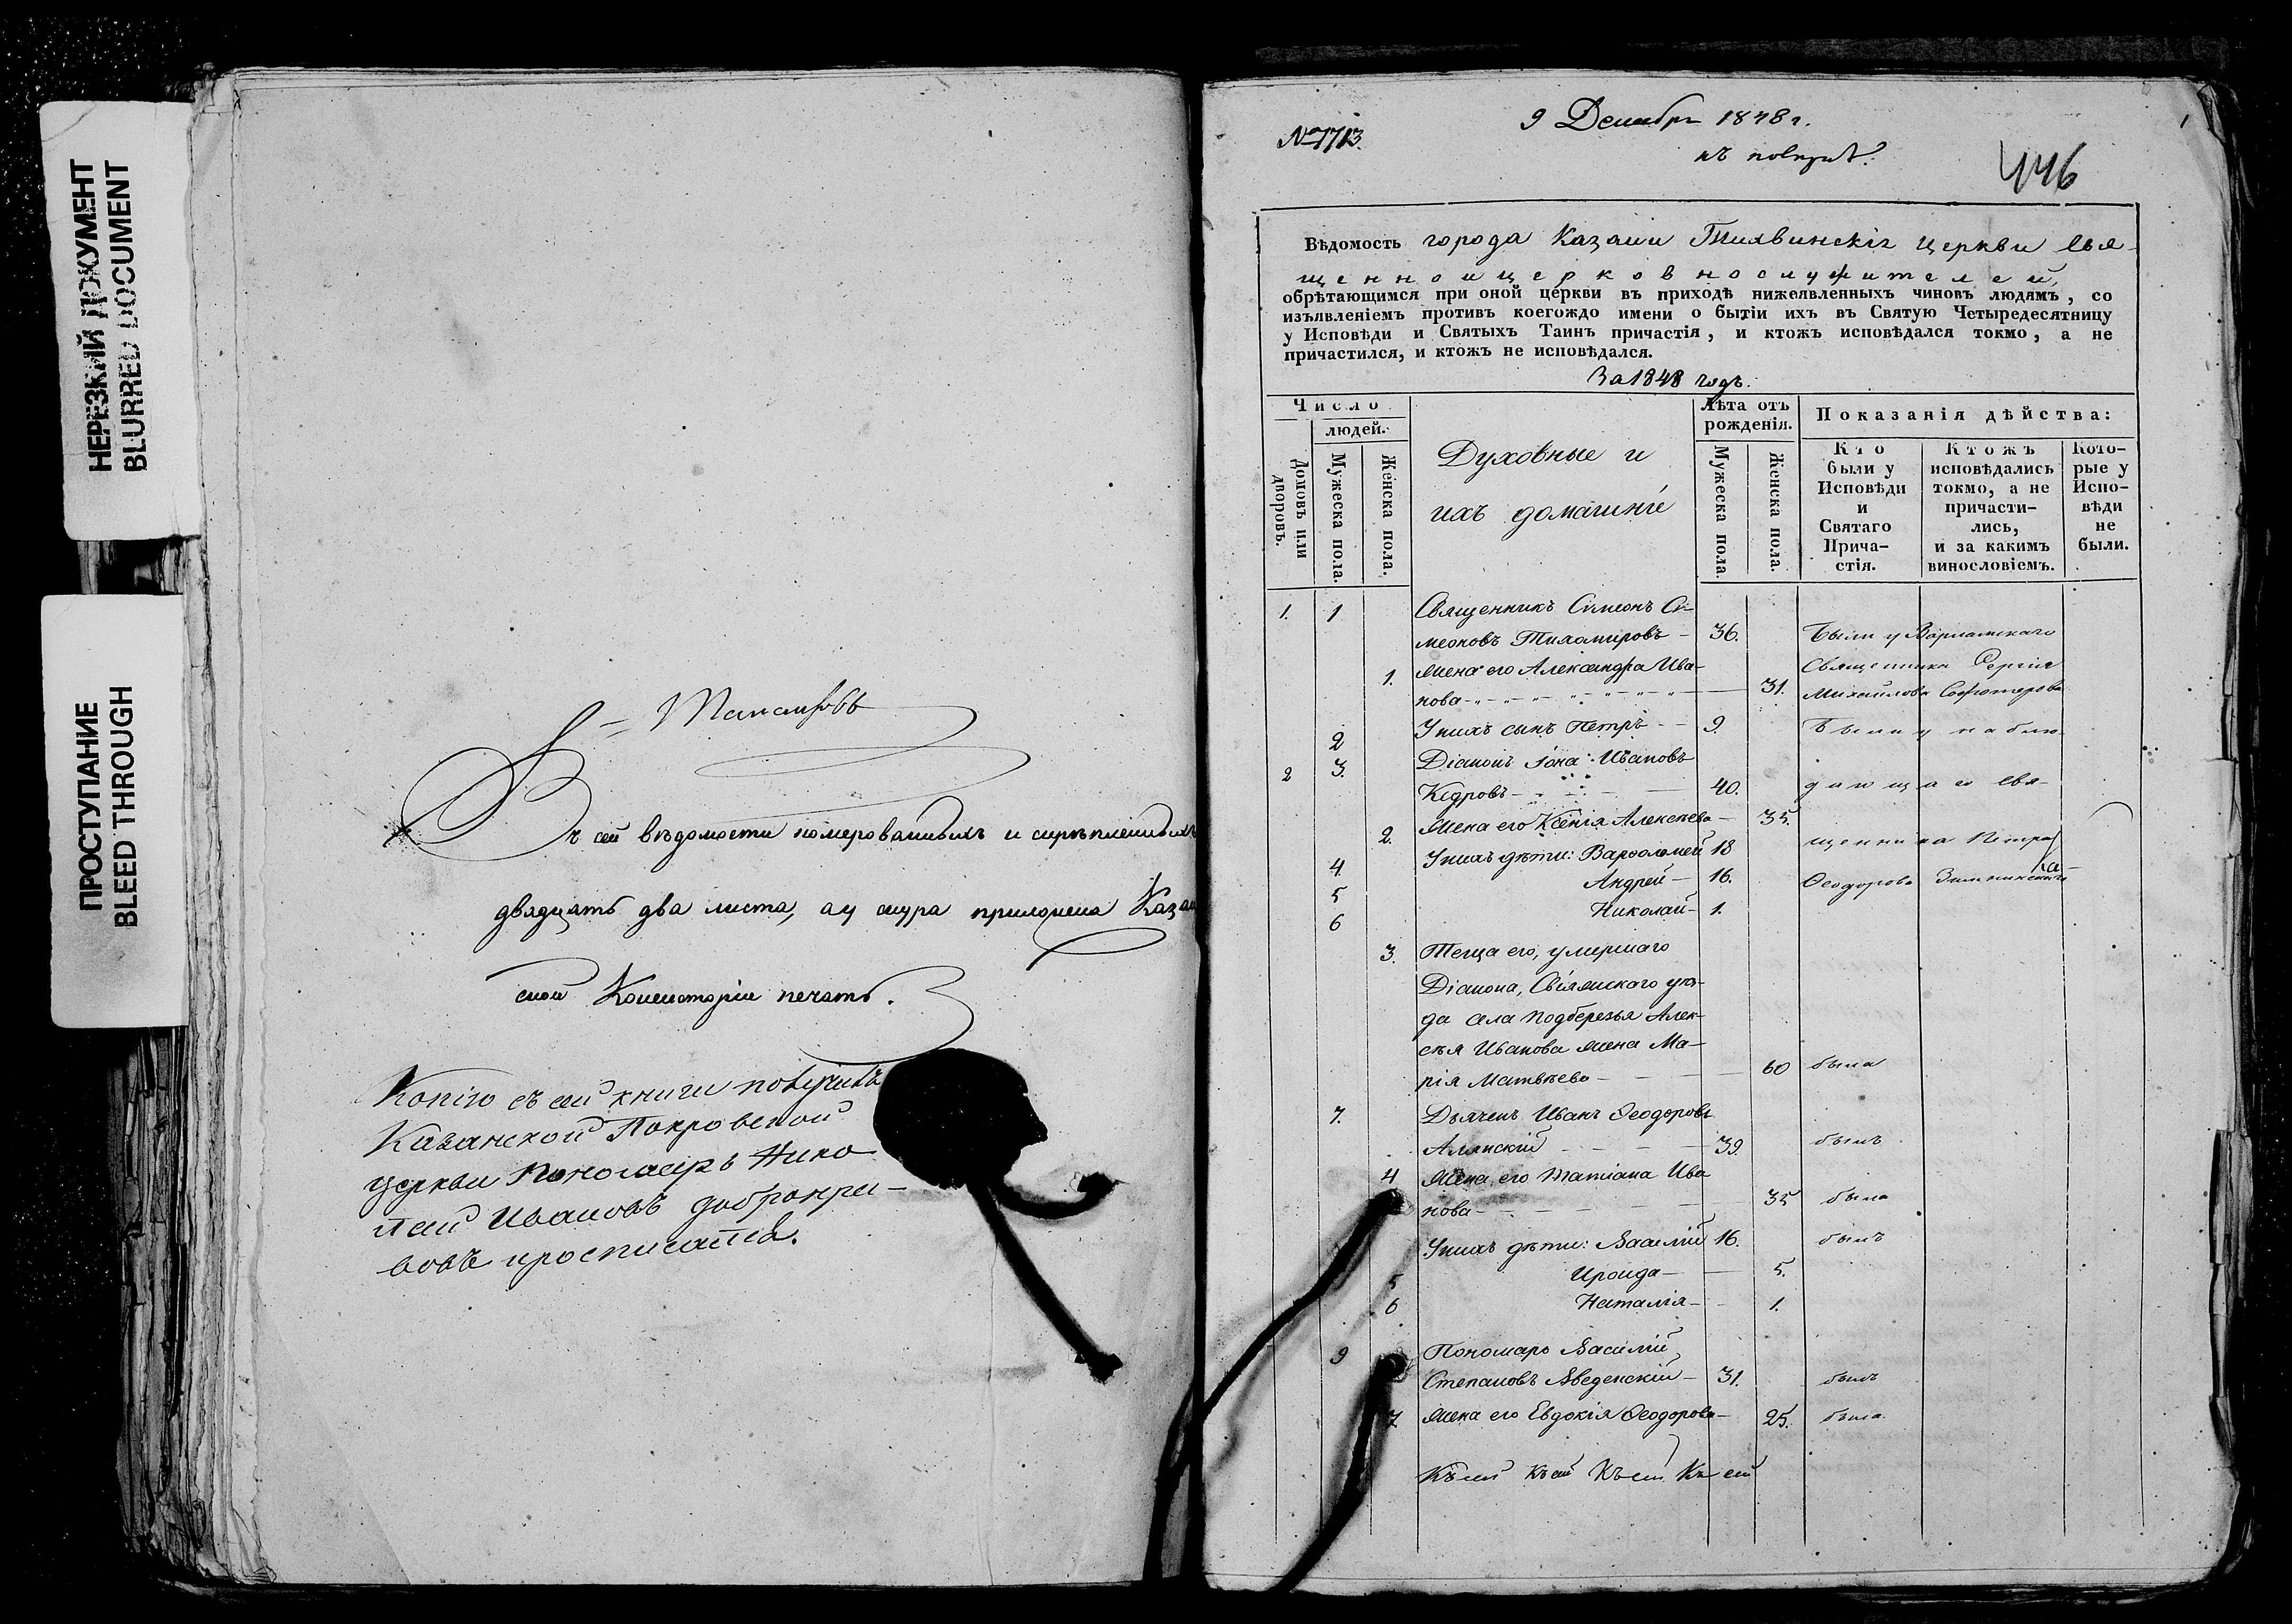 НЕРЕЗКИЙ ДОКУМЕНТ
BLURRED DOCUMENT
ПРОСТУПАНИЕ
BLEED THROUGH
Въ сей вѣдомости номерованныхъ и скрѣпленныхъ
двадцать два листа, а у шнура приложена Казан
ской Консисторіи печать.
Копію съ сей книги получилъ
Казанской Покровской
церкви Пономарь Нико
лай Ивановъ
росписался.
№ 1713.
9 Декабря 1848 г.
446
1
Вѣдомость города Казани Тихвинскія церкви Свя-
щенноицерковнослужителей,
обрѣтающимся при оной церкви въ приходѣ нижеявленныхъ чиновъ людямъ, со
изъявленіемъ противъ коегождо имени о бытіи ихъ въ Святую Четыредесятницу
у Исповѣди и Святыхъ Таинъ причастія, и ктожъ исповѣдался токмо, а не
причастился, и ктожъ не исповѣдался.
За 1848 годъ.
Число
людей.
Домовъ или дворовъ.
Мужеска пола.
Женска пола.
Духовные и
ихъ домашніе
Лѣта отъ
рожденія.
Мужеска пола.
Женска пола.
Показанія дѣйства:
Кто
были у
Исповѣди
и
Святаго
Прича-
стія.
Ктожъ
исповѣдались
токмо, а не
причасти-
лись,
и за какимъ
винословіемъ.
Кото-
рые у
Испо-
вѣди
не
были.
1. 1 Священникъ Симеонъ Си-
меоновъ Тихомировъ - 36. Были у Варламскаго
1. Жена его Александра Ива- Священника Сергія
нова - 31. Михайлова
2 У нихъ сынъ Петръ - 9. Были у наблю
2 3. Діаконъ Іона Ивановъ
Кедровъ - 40. дающаго Свя-
2. Жена его Ксенія Алексѣева - 35.
4. У нихъ дѣти: Варѳоломей 18 щенника Петра
5 Андрей - 16. Ѳеодорова
6 Николай - 1.
3. Теща его, умершаго
Діакона, Свіяжскаго уѣз-
да села Подберезья Алек-
сѣя Иванова жена Ма-
рія Матвѣева - 60 была
7. Дьячекъ Иванъ Ѳеодоровъ
Алянскій - 39. былъ
4 Жена его Татіана Ива
нова - 35 была
У нихъ дѣти: Василій 16. былъ
5 Ираида - 5.
6 Наталія - 1.
9 Пономарь Василій
Степановъ Введенскій - 31. былъ
7 Жена его Евдокія Ѳеодорова - 25. была
Къ сей Къ сей Къ сей Къ сей